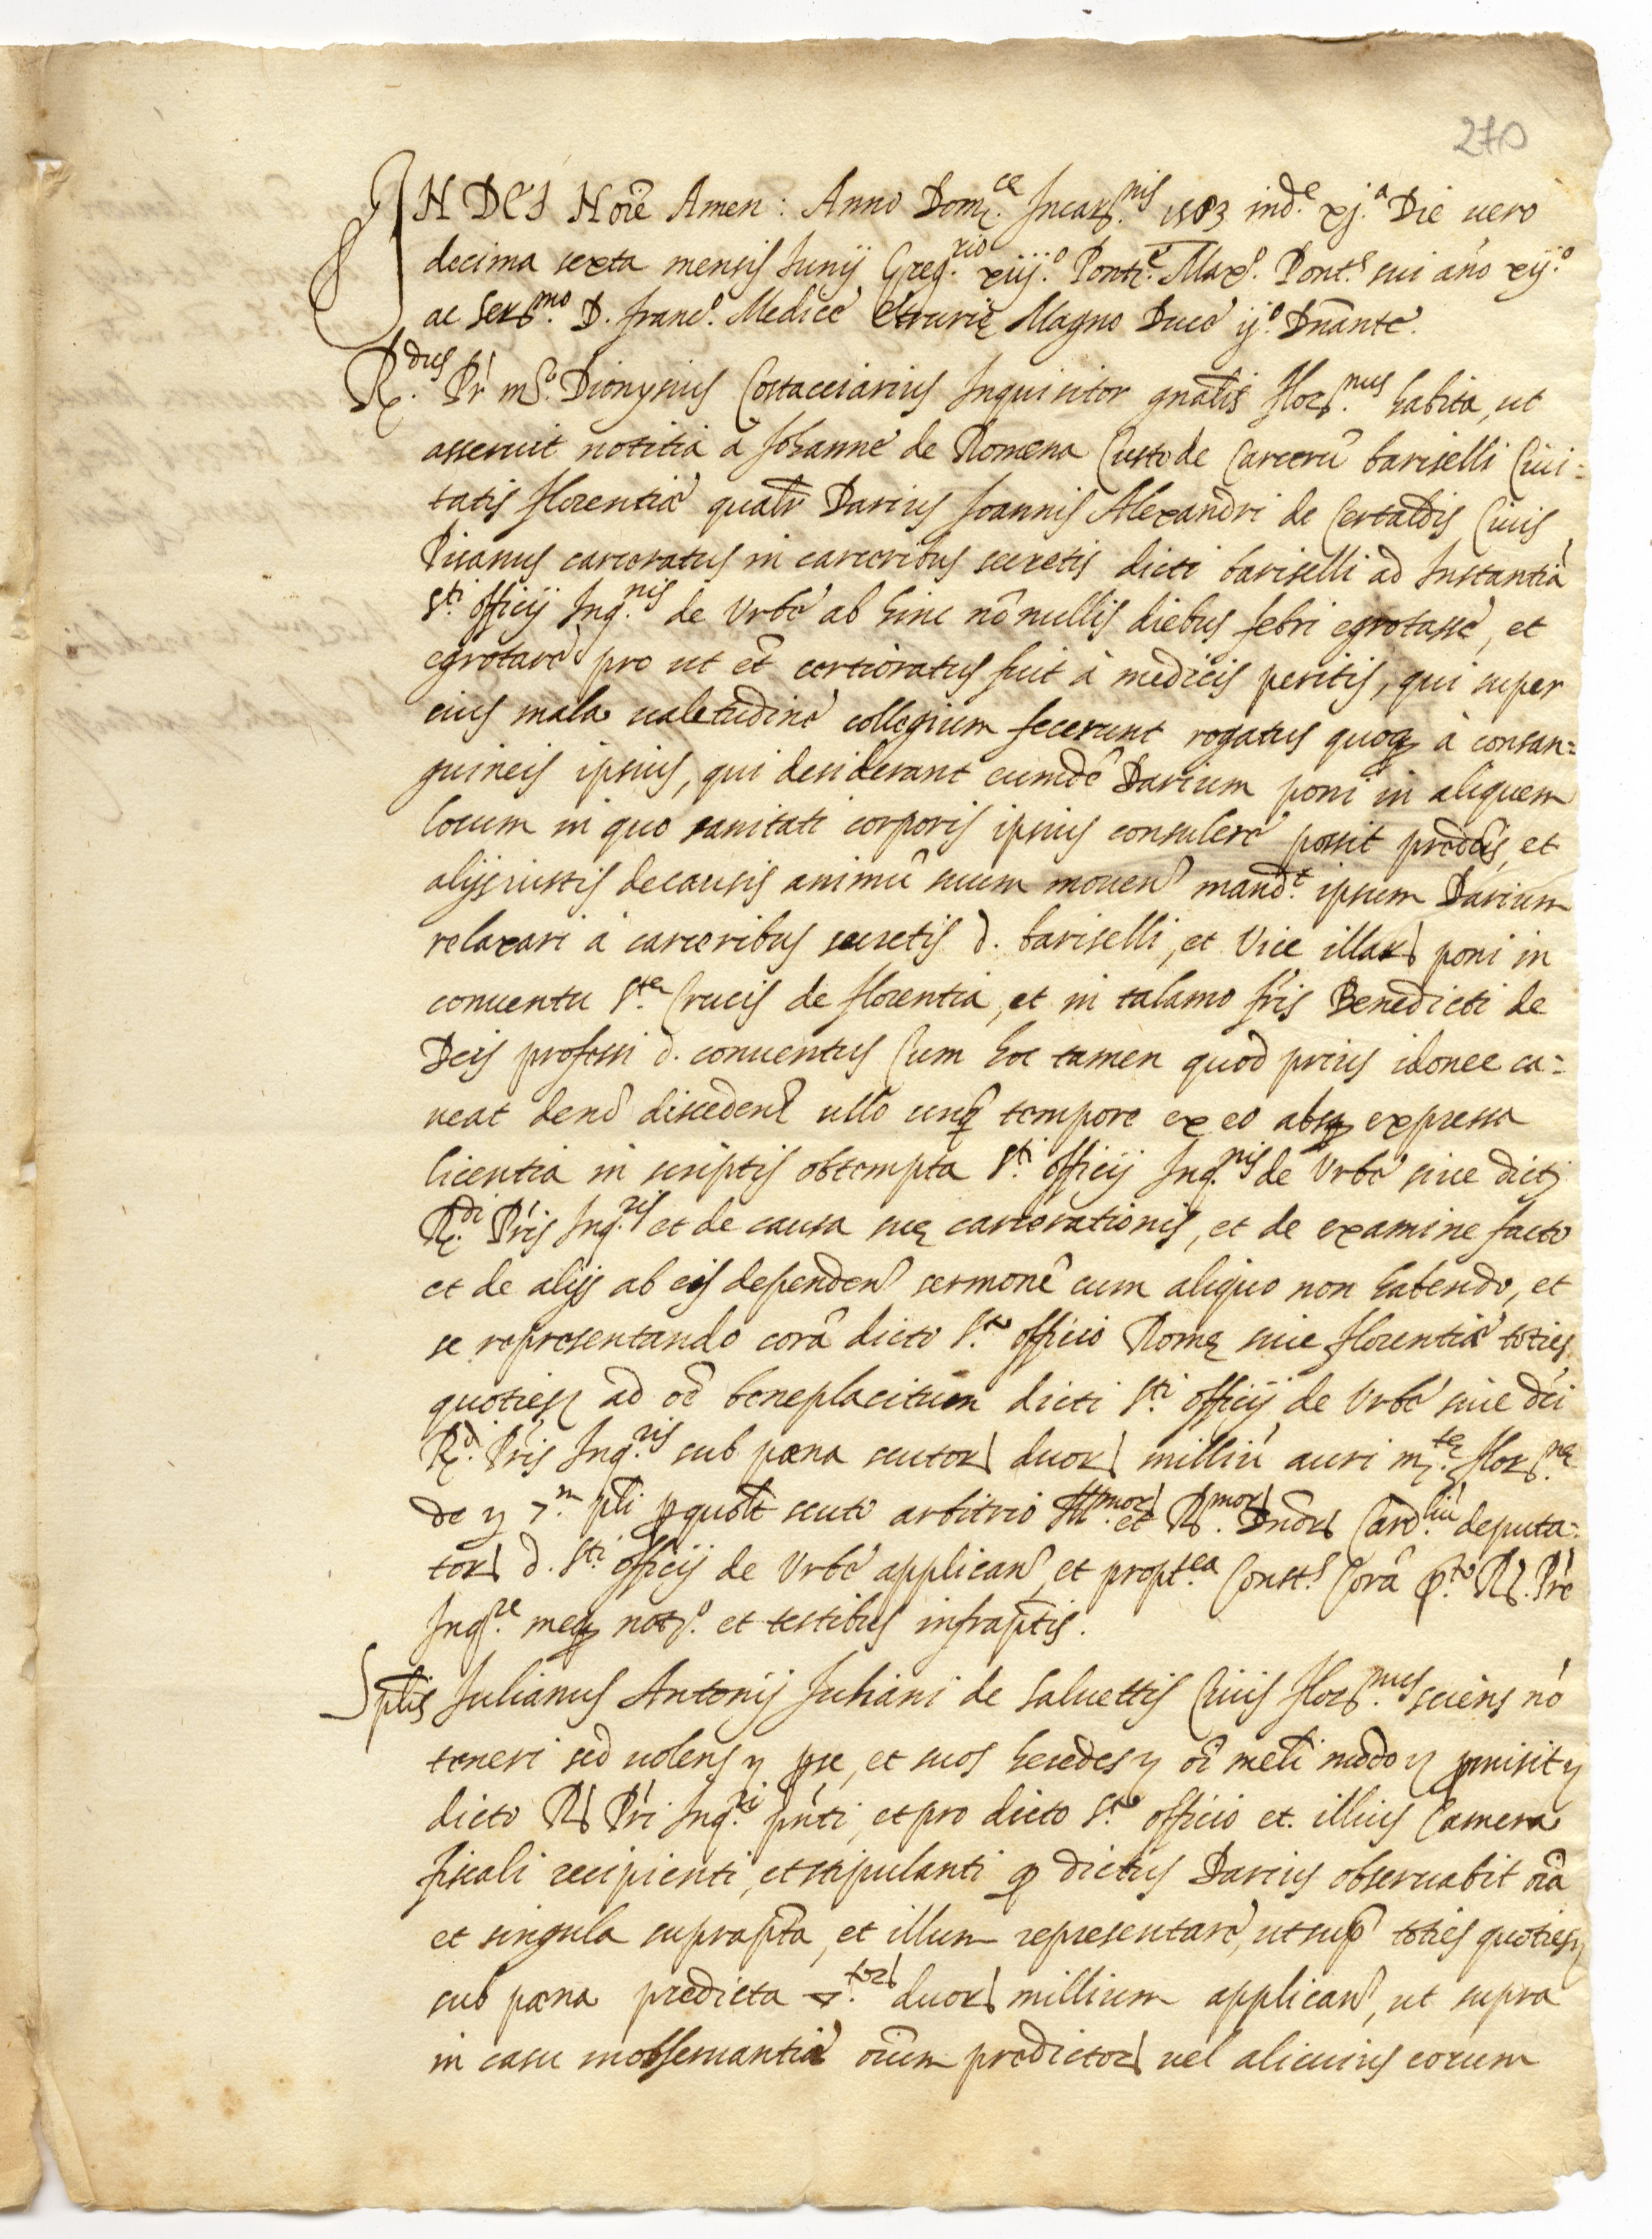 270
IN DEI Noĩe Amen: Anno Domce. Incarnis. 1583 inde. xj.a Die uero
decima sexta mensis Junij Gregrio. xiij.o Ponte. Maxo. Ponts. sui año xij.o
ac Sermo. D. Franco. Medice Etrurię Magno Duce ij.o Dñante.
Rdus. Pr mro. Dionysius Costacciarius Inquisitor gñalis Flornus. habita, ut
asseruit notitia á Johanne de Romena Custode Carcerũ bariselli Ciui=
tatis Florentiae qualr Darius Joannis Alexandri de Certaldis Ciuis
Pisanus carceratus in carceribus secretis dicti bariselli ad Instantiã
Sti. officij Inqnis. de Vrbe ab hinc nõnullis diebus febri egrotasse, et
egrotare pro ut et certioratus fuit á medicis peritis, qui super
eius mala ualetudine collegium fecerunt rogatus quoq á consan=
guineis ipsius, qui desiderant eumdẽ Darium poni in aliquem
locum in quo sanitati corporis ipsius consulere possit predcis, et
alijs iustis de causis animũ suum mouen mandt. ipsum Darium
relaxari á carceribus secretis d. bariselli, et Vice illar poni in
conuentu Stae Crucis de florentia, et in talamo fris Benedicti de
Deis professi d. conuentus Cum hoc tamen quod prius idonee ca=
ueat de nõ disceden ullo unq tempore ex eo absq expressa
licentia in scriptis obtempta Sti. officij Inqnis de Vrbe siue dicti
Rdi. Pris Inqris et de causa suę carcerationis, et de examine facto
et de alijs ab eis dependen sermonẽ cum aliquo non habendo, et
se representando corã dicto Sto. officio Romę siue florentiae toties
quoties ad oẽ beneplacitum dicti Sti. officij de Vrbe siue dci
Rdi. Pris Inqris sub pæna scutor duor milliũ auri mte. flornę
de 7. pli p quolt scuto arbitrio Illmor. et Rmor. Dñor Cardliũ deputa=
tor d. Sti. officij de Vrbe applican, et proptea Consts. Corã pto. R. Pre
Inqre. meq noto. et testibus infraptis.
Splis Julianus Antonij Juliani de Saluettis Ciuis Flornus. sciens nõ
teneri sed uolens p se, et suos heredes oĩ meli modo promisit
dicto R Pri Inqri pnti, et pro dicto Sto. officio et illius Camera
fiscali recipienti, et stipulanti q dictus Darius obseruabit oĩa
et singula suprapta, et illum representare, ut sup toties quoties
sub pæna predicta tor duor millium applican, ut supra
in casu inobseruantiae oĩum predictor uel alicuius eorum